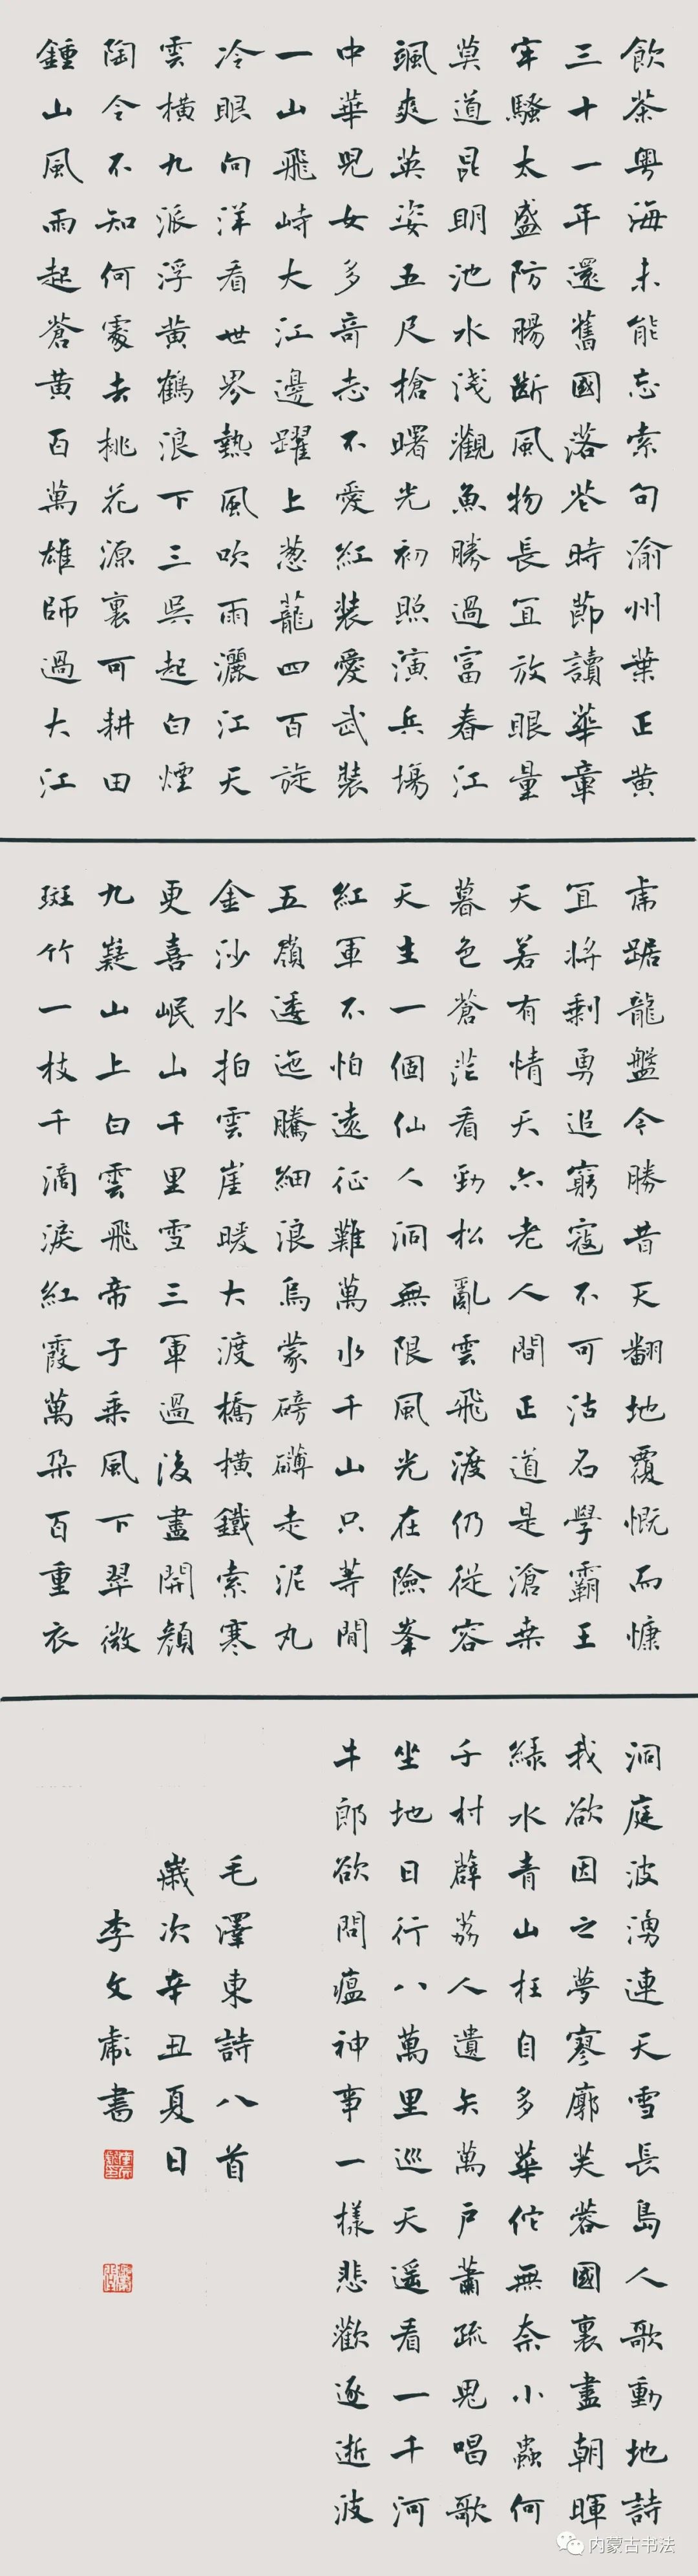 飲茶粵海未能忘索句渝州葉正黃
三十一年還舊國落花時節讀華章
牢騷太盛防腸斷風物長宜放眼量
莫道昆明池水淺觀魚勝過富春江
颯爽英姿五尺槍曙光初照演兵場
中華兒女多奇志不愛紅裝愛武裝
一山飛峙大江邊躍上葱蘢四百旋
冷眼向洋看世界熱風吹雨灑江天
雲橫九派浮黃鶴浪下三吳起白煙
陶令不知何處去桃花源裏可耕田
鍾山風雨起蒼黃百萬雄師過大江
虎踞龍盤今勝昔天翻地覆慨而慷
宜將剩勇追窮寇不可沽名學霸王
天若有情天亦老人間正道是滄桑
暮色蒼茫看勁松亂雲飛渡仍從容
天生一個仙人洞無限風光在險峯
紅軍不怕遠征難萬水千山只等閒
五嶺逶迤騰細浪烏蒙磅礴走泥丸
金沙水拍雲崖暖大渡橋橫鐵索寒
更喜岷山千里雪三軍過後盡開顏
九嶷山上白雲飛帝子乘風下翠微
斑竹一枝千滴淚紅霞萬朵百重衣
洞庭波湧連天雪長島人歌動地詩
我欲因之夢寥廓芙蓉國裏盡朝暉
綠水青山枉自多華佗無奈小蟲何
千村薜荔人遺矢萬戶蕭疏鬼唱歌
坐地日行八萬里巡天遥看一千河
牛郎欲問瘟神事一樣悲歡逐逝波
毛澤東詩八首
歲次辛丑夏日
李文書
内蒙古书法